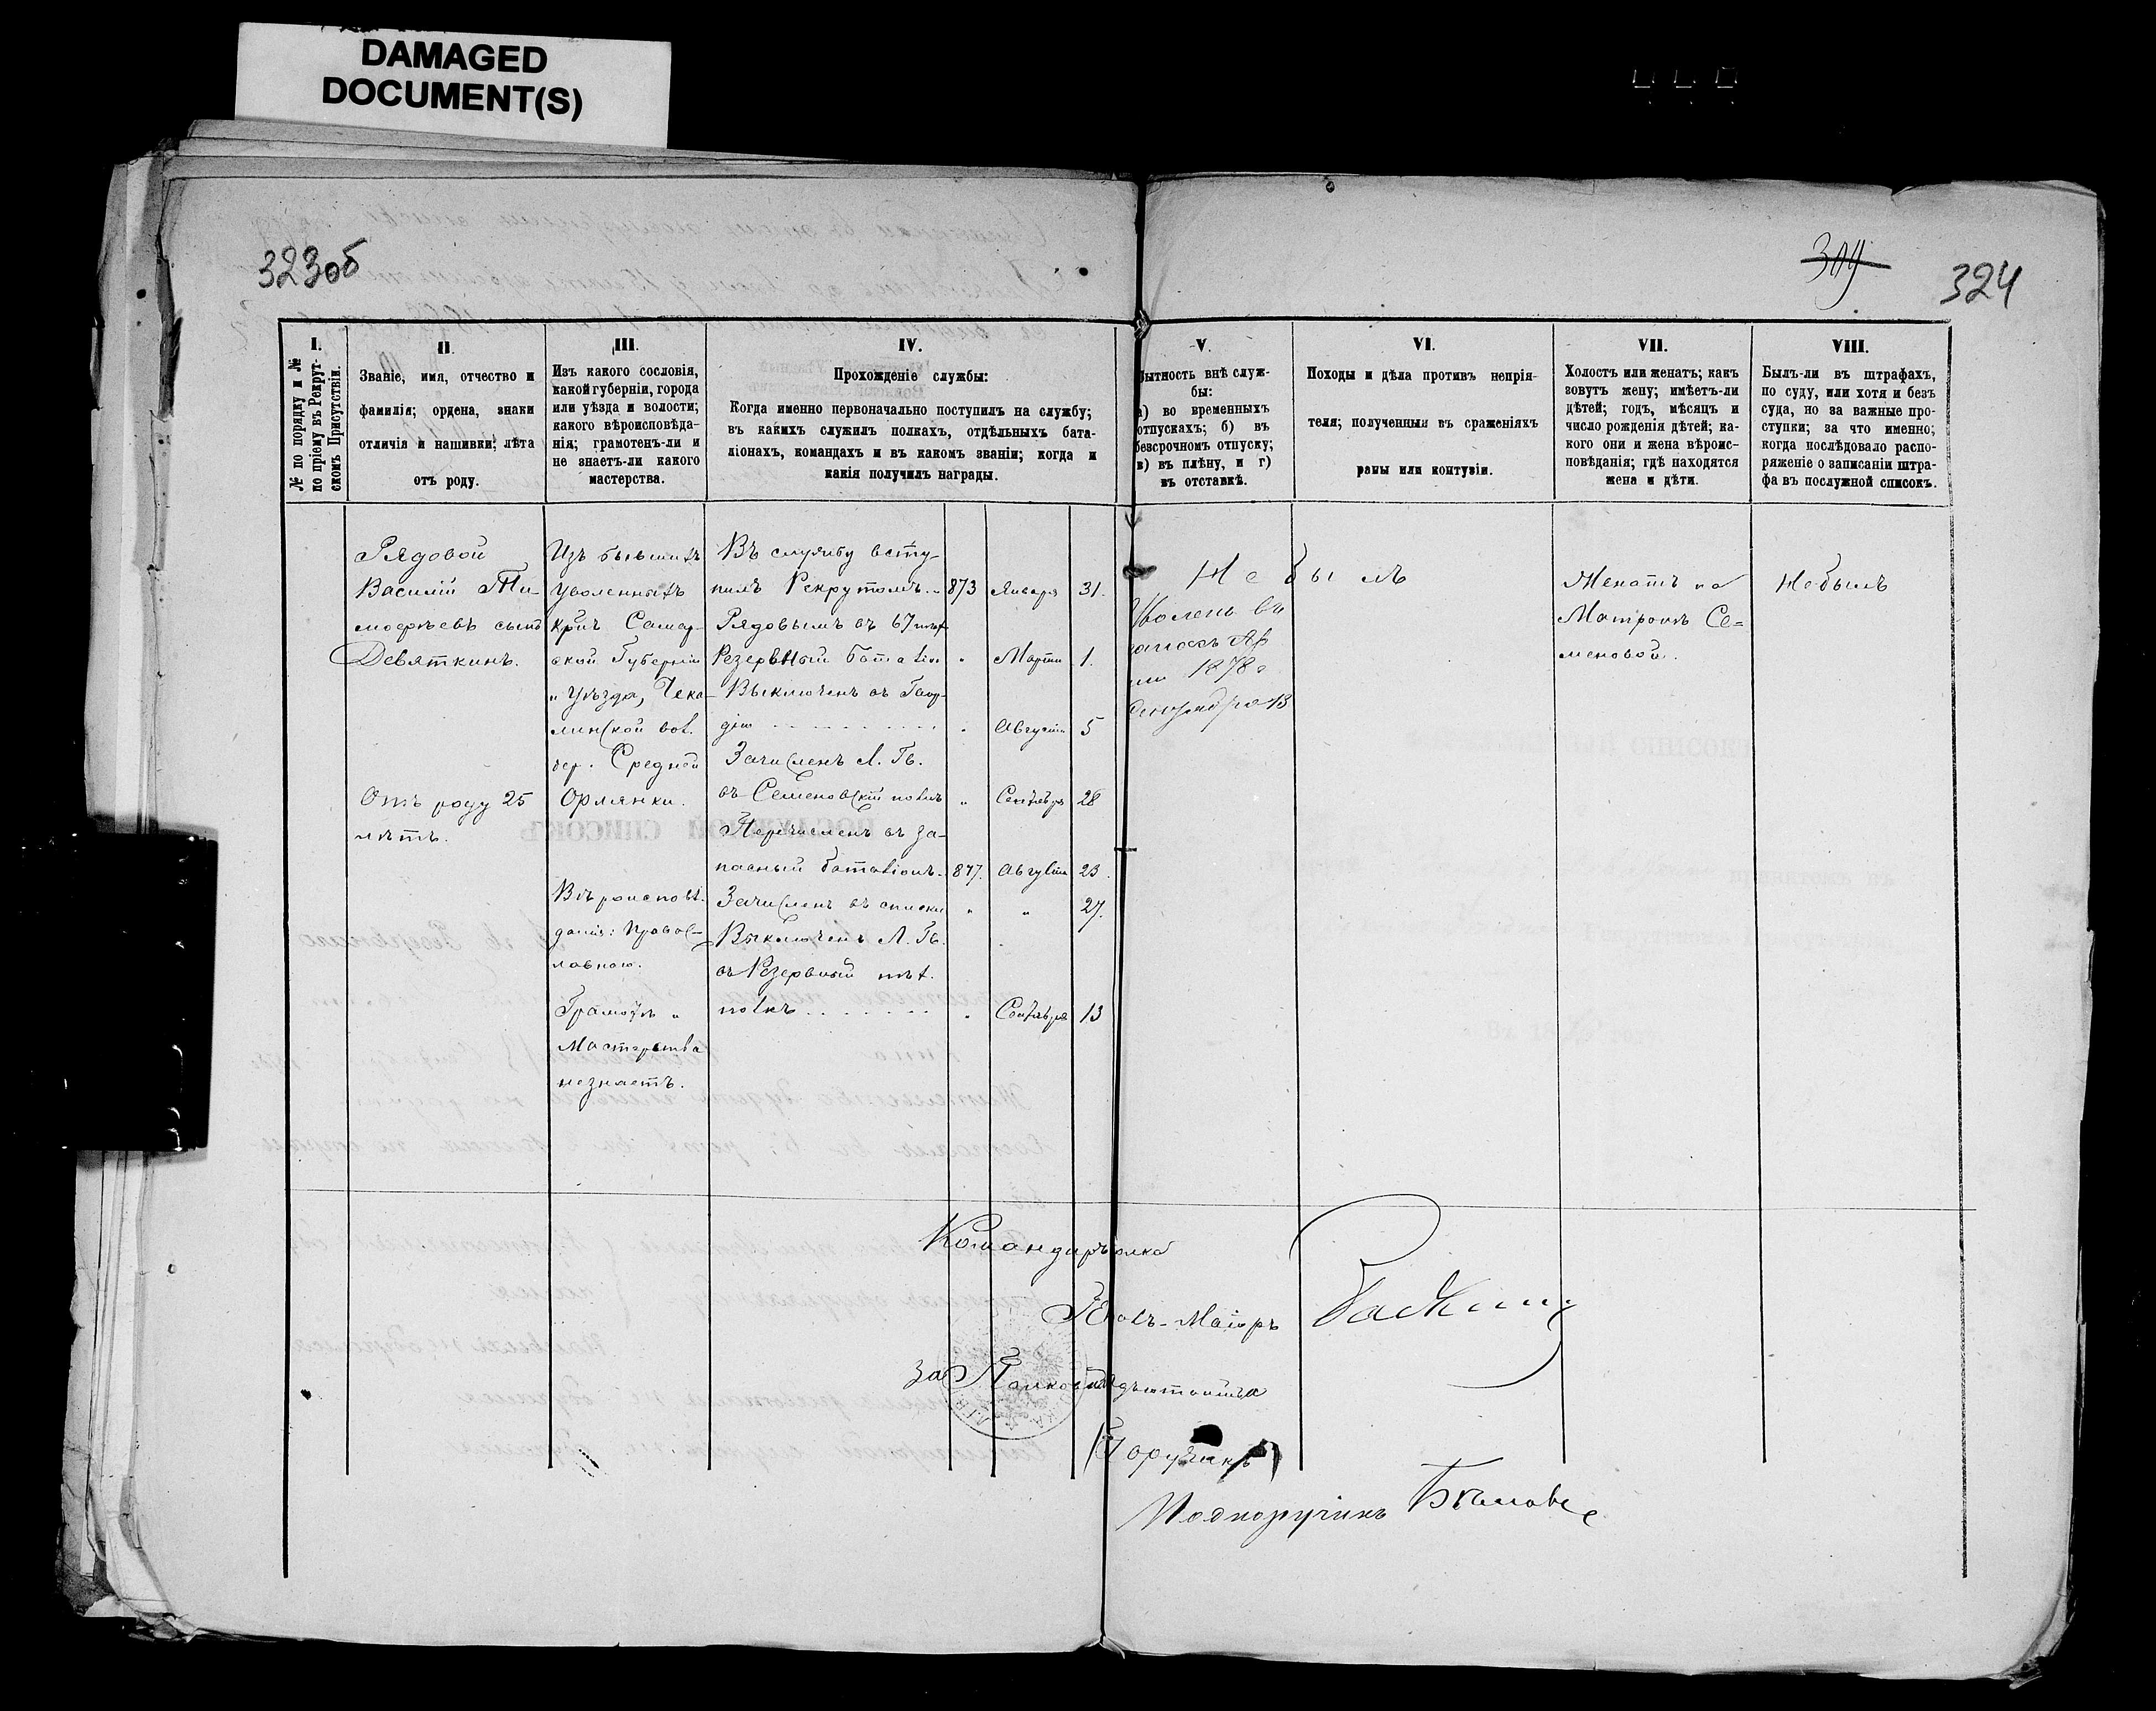 DAMAGED
DOCUMENT(S)
323об
309
324
I.
№ по порядку и №
по пріему въ Рекрут-
скомъ Присутствіи.
II.
Званіе, имя, отчество и
фамилія; ордена, знаки
отличія и нашивки; лѣта
отъ роду.
III.
Изъ какого сословія,
какой губерніи, города
или уѣзда и волости;
какого вѣроисповѣда-
нія; грамотенъ-ли и
не знаетъ-ли какого
мастерства.
IV.
Прохожденіе службы:
Когда именно первоначально поступилъ на службу;
въ какихъ служилъ полкахъ, отдѣльныхъ бата-
ліонахъ, командахъ и въ какомъ званіи; когда и
какія получилъ награды.
V.
Бытность внѣ служ-
бы:
а) во временныхъ
отпускахъ; б) въ
безсрочномъ отпуску;
в) въ плѣну, и г)
въ отставкѣ.
VI.
Походы и дѣла противъ непрія-
теля; полученныя въ сраженіяхъ
раны или контузіи.
VII.
Холостъ или женатъ; какъ
зовутъ жену; имѣетъ-ли
дѣтей; годъ, мѣсяцъ и
число рожденія дѣтей; ка-
кого они и жена вѣроис-
повѣданія; гдѣ находятся
жена и дѣти.
VIII.
Былъ-ли въ штрафахъ,
по суду, или хотя и безъ
суда, но за важные про-
ступки; за что именно;
когда послѣдовало распо-
ряженіе о записаніи штра-
фа въ послужной списокъ.
Рядовой
Василій Ти-
моѳѣевъ сынъ
Девяткинъ.
Отъ роду 25
лѣтъ.
Изъ бывшихъ
удѣльныхъ
кр. Самар-
ской Губерніи
" уѣзда, Чека-
линской вол.
дер. Средней
Орлянки.
Вѣроисповѣ-
данія: Право-
славного.
Грамотѣ "
Мастерства
незнаетъ.
Въ службу всту-
пилъ Рекрутомъ. 873 Января 31.
Рядовымъ въ 67 пѣх.
Резервный баталіон " Марта 1.
Выключенъ въ Гвар-
дію " Августа 5
Зачисленъ Л. Гв.
въ Семеновскій полкъ " Сентября 28
Перечисленъ въ за-
пасный баталіонъ. 877. Августа 23.
Зачисленъ въ списки " " 27.
Выключенъ Л. Гв.
въ Резервный пѣх.
полкъ " Сентября 13
Не былъ
Уволенъ въ
запасъ Ар
міи 1878 г
Сентября 13
Женатъ на
Матронѣ Се=
меновой.
Небылъ
Командиръ полка
Генолъ-Маіоръ
За Полковаго Адъютанта
Поручикъ
Подпоручикъ